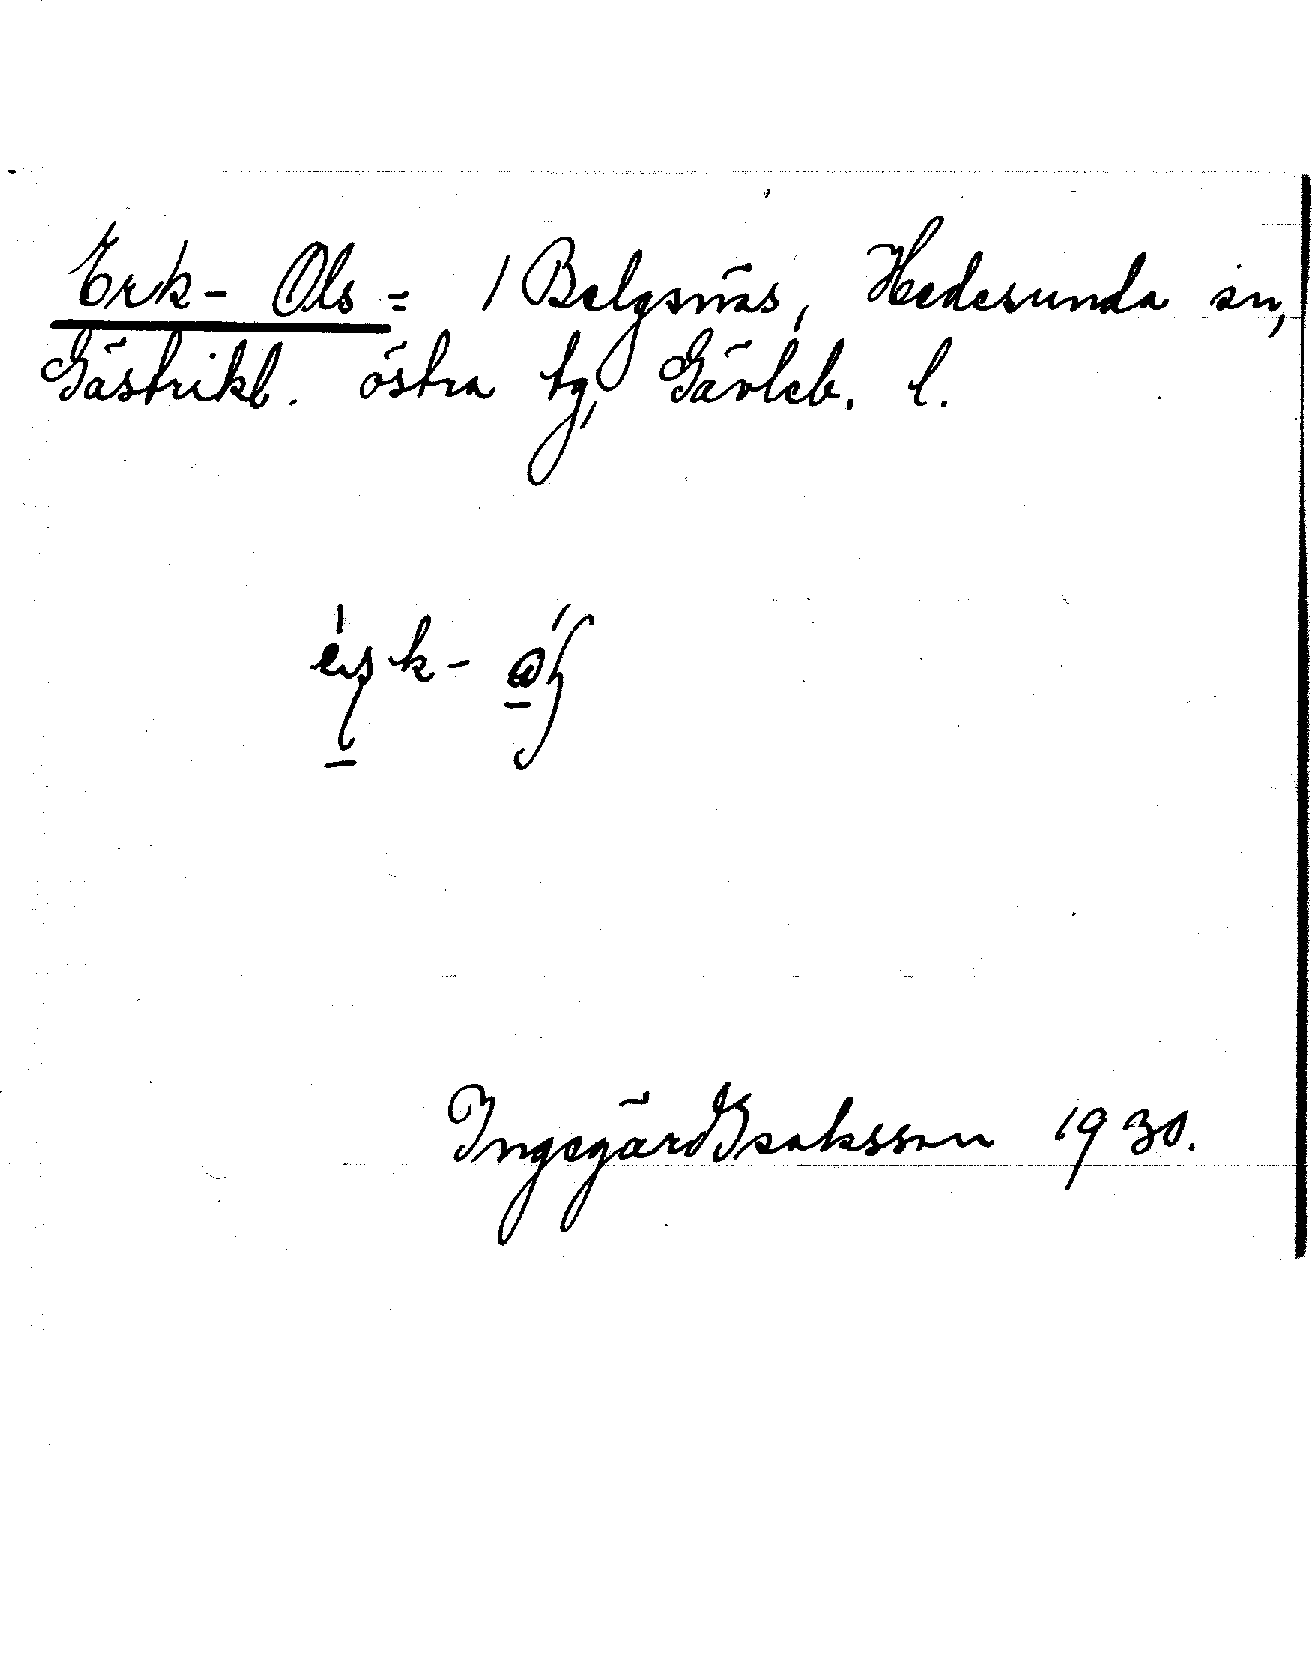 Erk-Ols= / Belgsnäs, Hedesunda sn,
Gästrikl. östra tg, Gävleb. l.
Ingegärd Isaksson 1930.